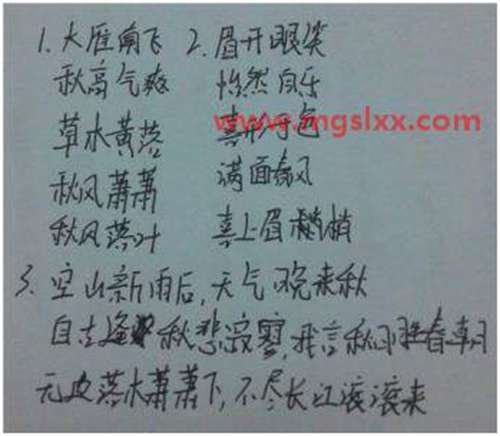 1. 大雁南飞 2. 眉开眼笑
秋高气爽 怡然自乐
www.mgslxx.com
草木黄落 喜形于色
秋风萧萧 满面春风
秋风落叶 喜上眉梢
3. 空山新雨后,天气晚来秋
自古逢秋悲寂寥,我言秋日胜春朝
无边落木萧萧下,不尽长江滚滚来